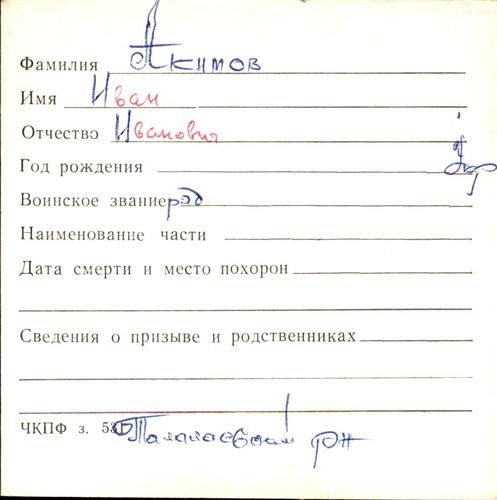 Фамилия Акимов
Имя Иван
Отчество Иванович
Год рождения
Воинское звание ряд
Наименование части
Дата смерти и место похорон
Сведения о призыве и родственниках
ЧКПФ з.
Талалаевский рн